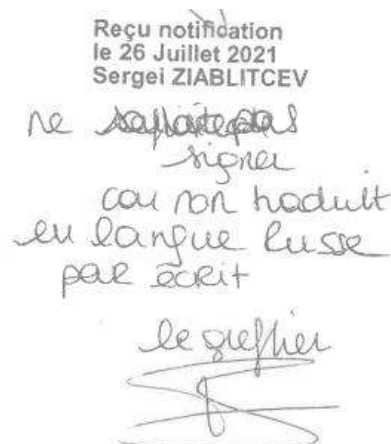 Reçu notification
le 26 Juillet 2021
Sergei ZIABLITCEV
ne souhaite pas
signer
car non traduit
en langue Russe
par écrit
le greffier